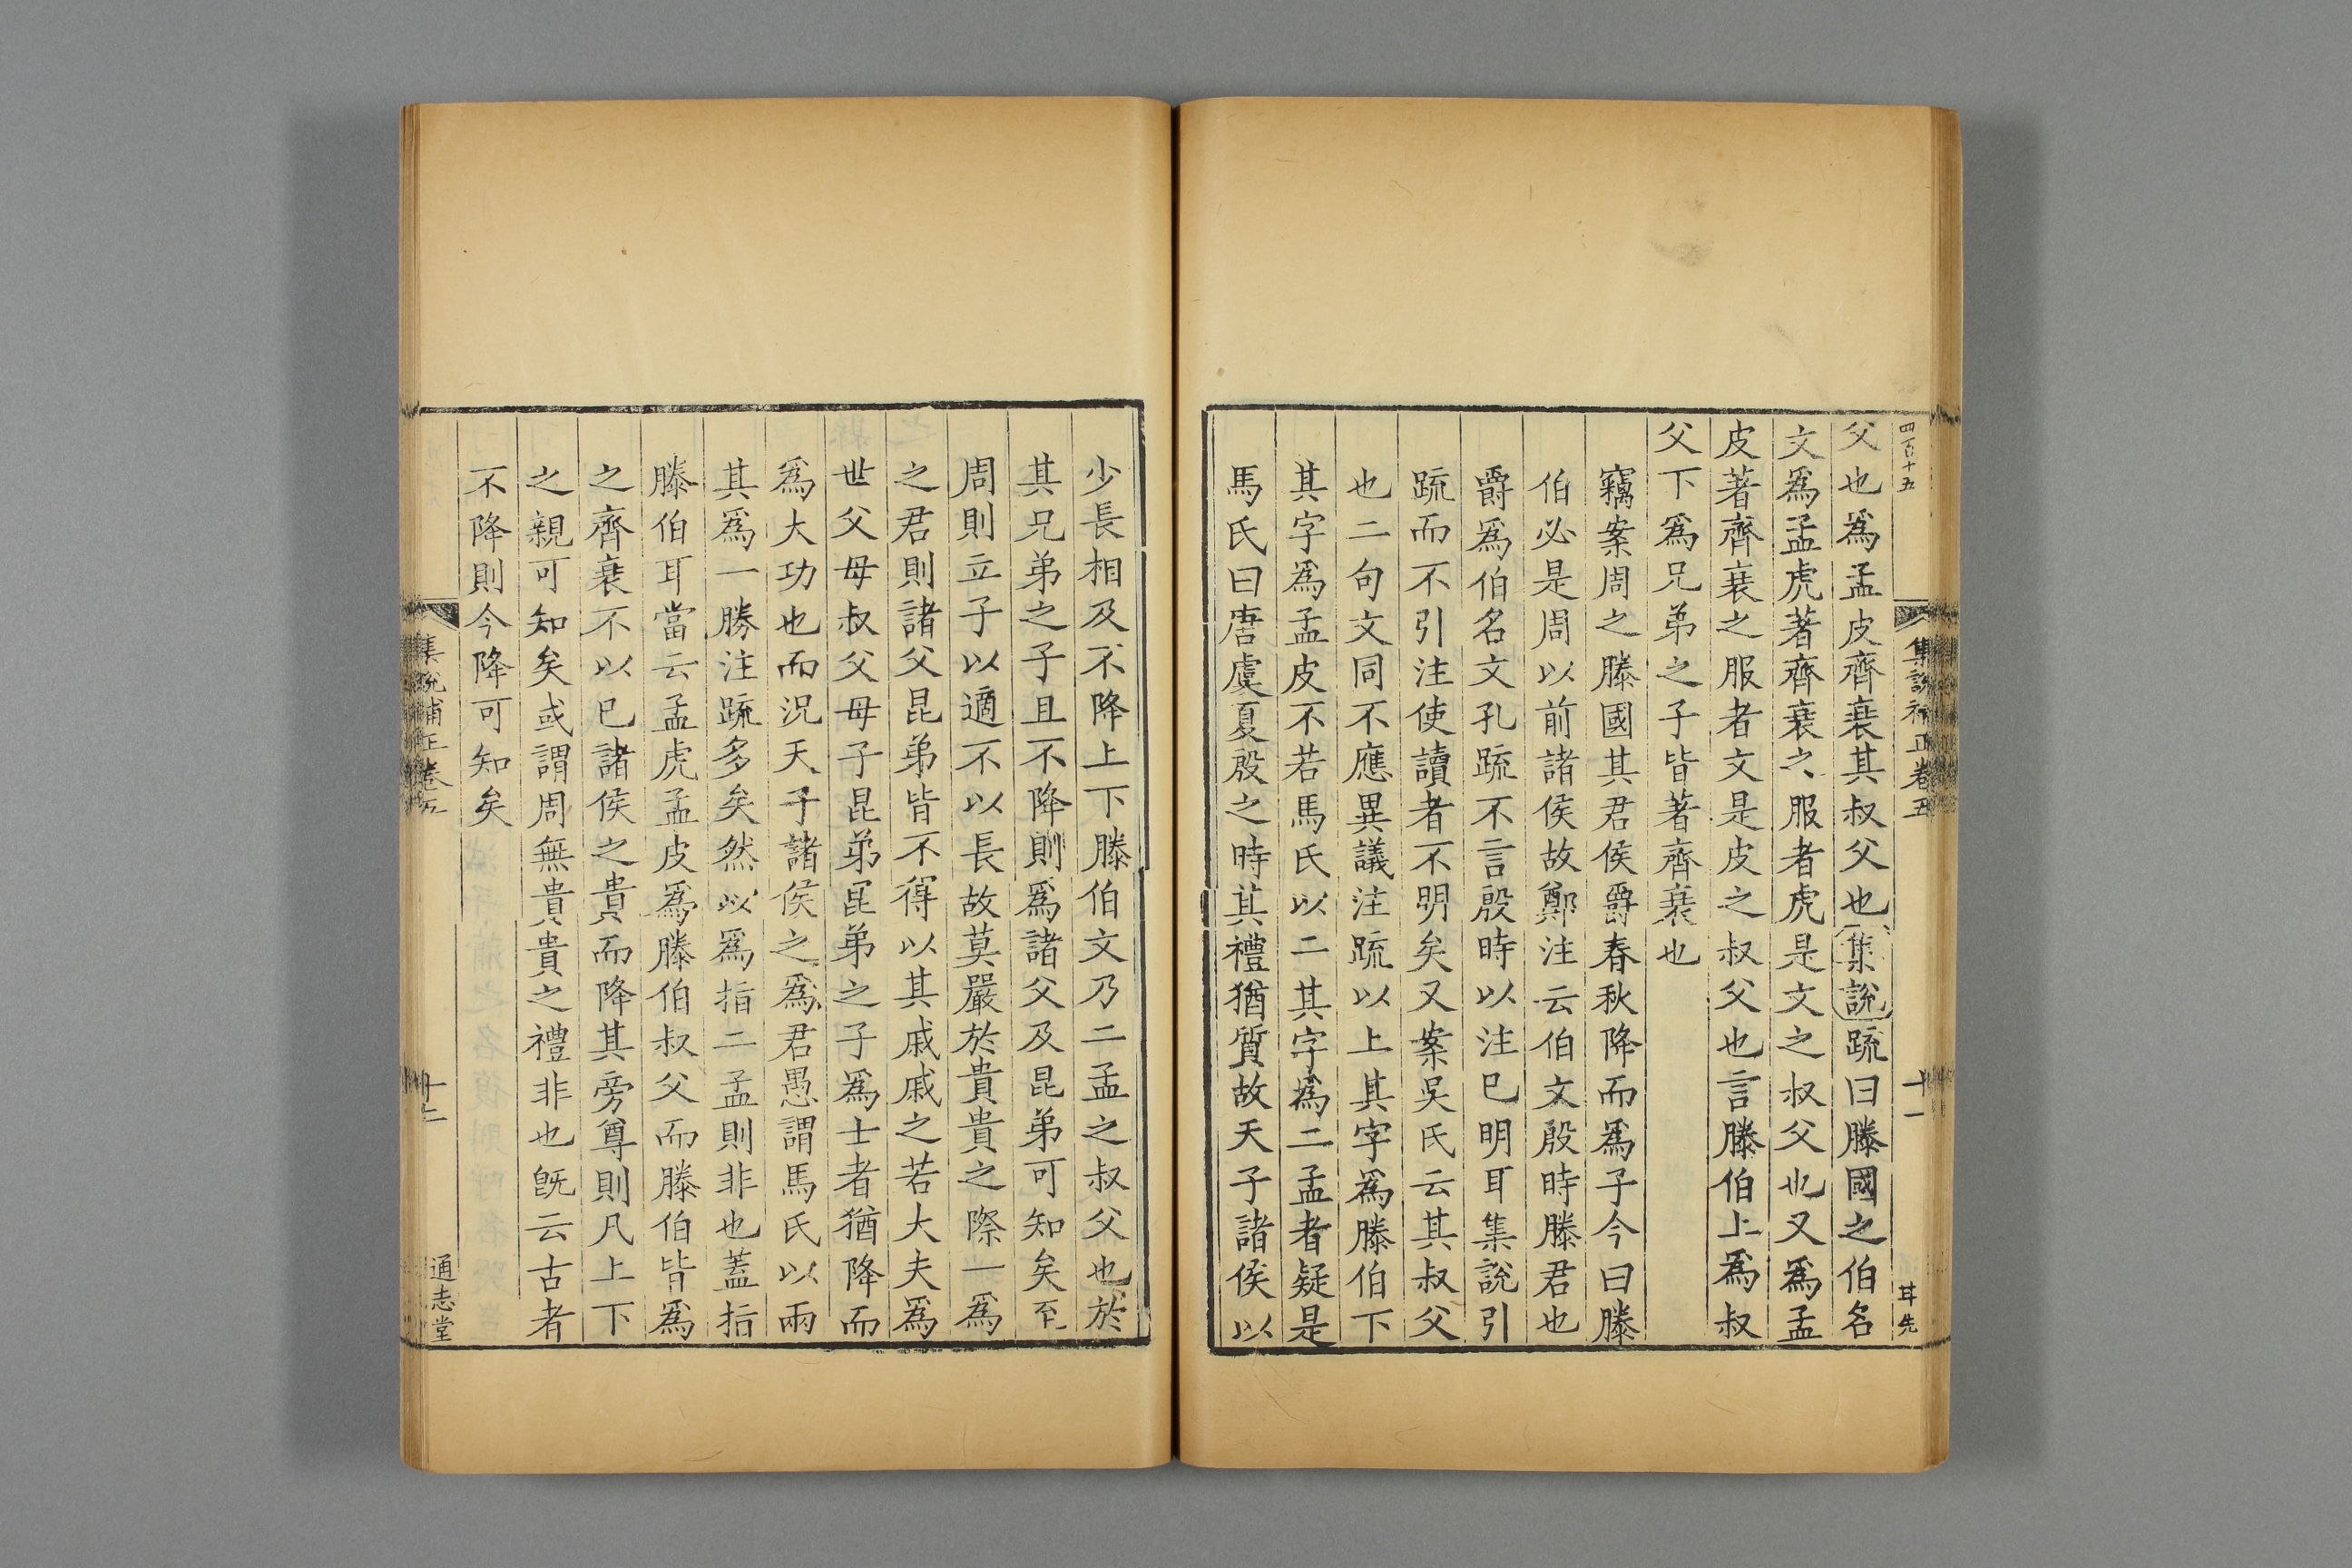 四百十五
集說補正卷五
十一
耳先
父也爲孟皮齊衰其叔父也集說疏曰滕國之伯名
文爲孟虎著齊衰之服者虎是文之叔父也又爲孟
皮著齊衰之服者文是皮之叔父也言滕伯上爲叔
父下爲兄弟之子皆著齊衰也
竊案周之滕國其君侯爵春秋降而爲子今曰滕
伯必是周以前諸侯故鄭注云伯文殷時滕君也
爵爲伯名文孔疏不言殷時以注巳明耳集說引
疏而不引注使讀者不明矣又案吳氏云其叔父
也二句文同不應異議注疏以上其字爲滕伯下
其字爲孟皮不若馬氏以二其字爲二孟者疑是
馬氏曰唐虞夏殷之時其禮猶質故天子諸侯以
少長相及不降上下滕伯文乃二孟之叔父也於
其兄弟之子且不降則爲諸父及昆弟可知矣至
周則立子以適不以長故莫嚴於貴貴之際一爲
之君則諸父昆弟皆不得以其戚戚之若大夫爲
世父母叔父母子昆弟昆弟之子爲士者猶降而
爲大功也而況天子諸侯之爲君愚謂馬氏以兩
其爲一勝注疏多矣然以爲指二孟則非也蓋指
滕伯耳當云孟虎孟皮爲滕伯叔父而滕伯皆爲
之齊衰不以巳諸侯之貴而降其旁尊則凡上下
之親可知矣或謂周無貴貴之禮非也旣云古者
不降則今降可知矣
集說補正卷五
十一
通志堂